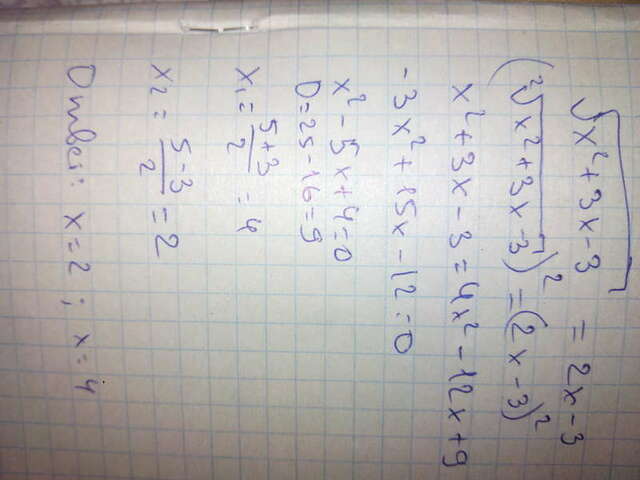 √x²+3x-3 = 2x-3
(²√x²+3x-3)² = (2x-3)²
x²+3x-3=4x²-12x+9
-3x²+15x-12=0
x²-5x+4=0
D=25-16=9
x₁=5+3/2=4
x₂=5-3/2=2
Ответ: x=2; x=4